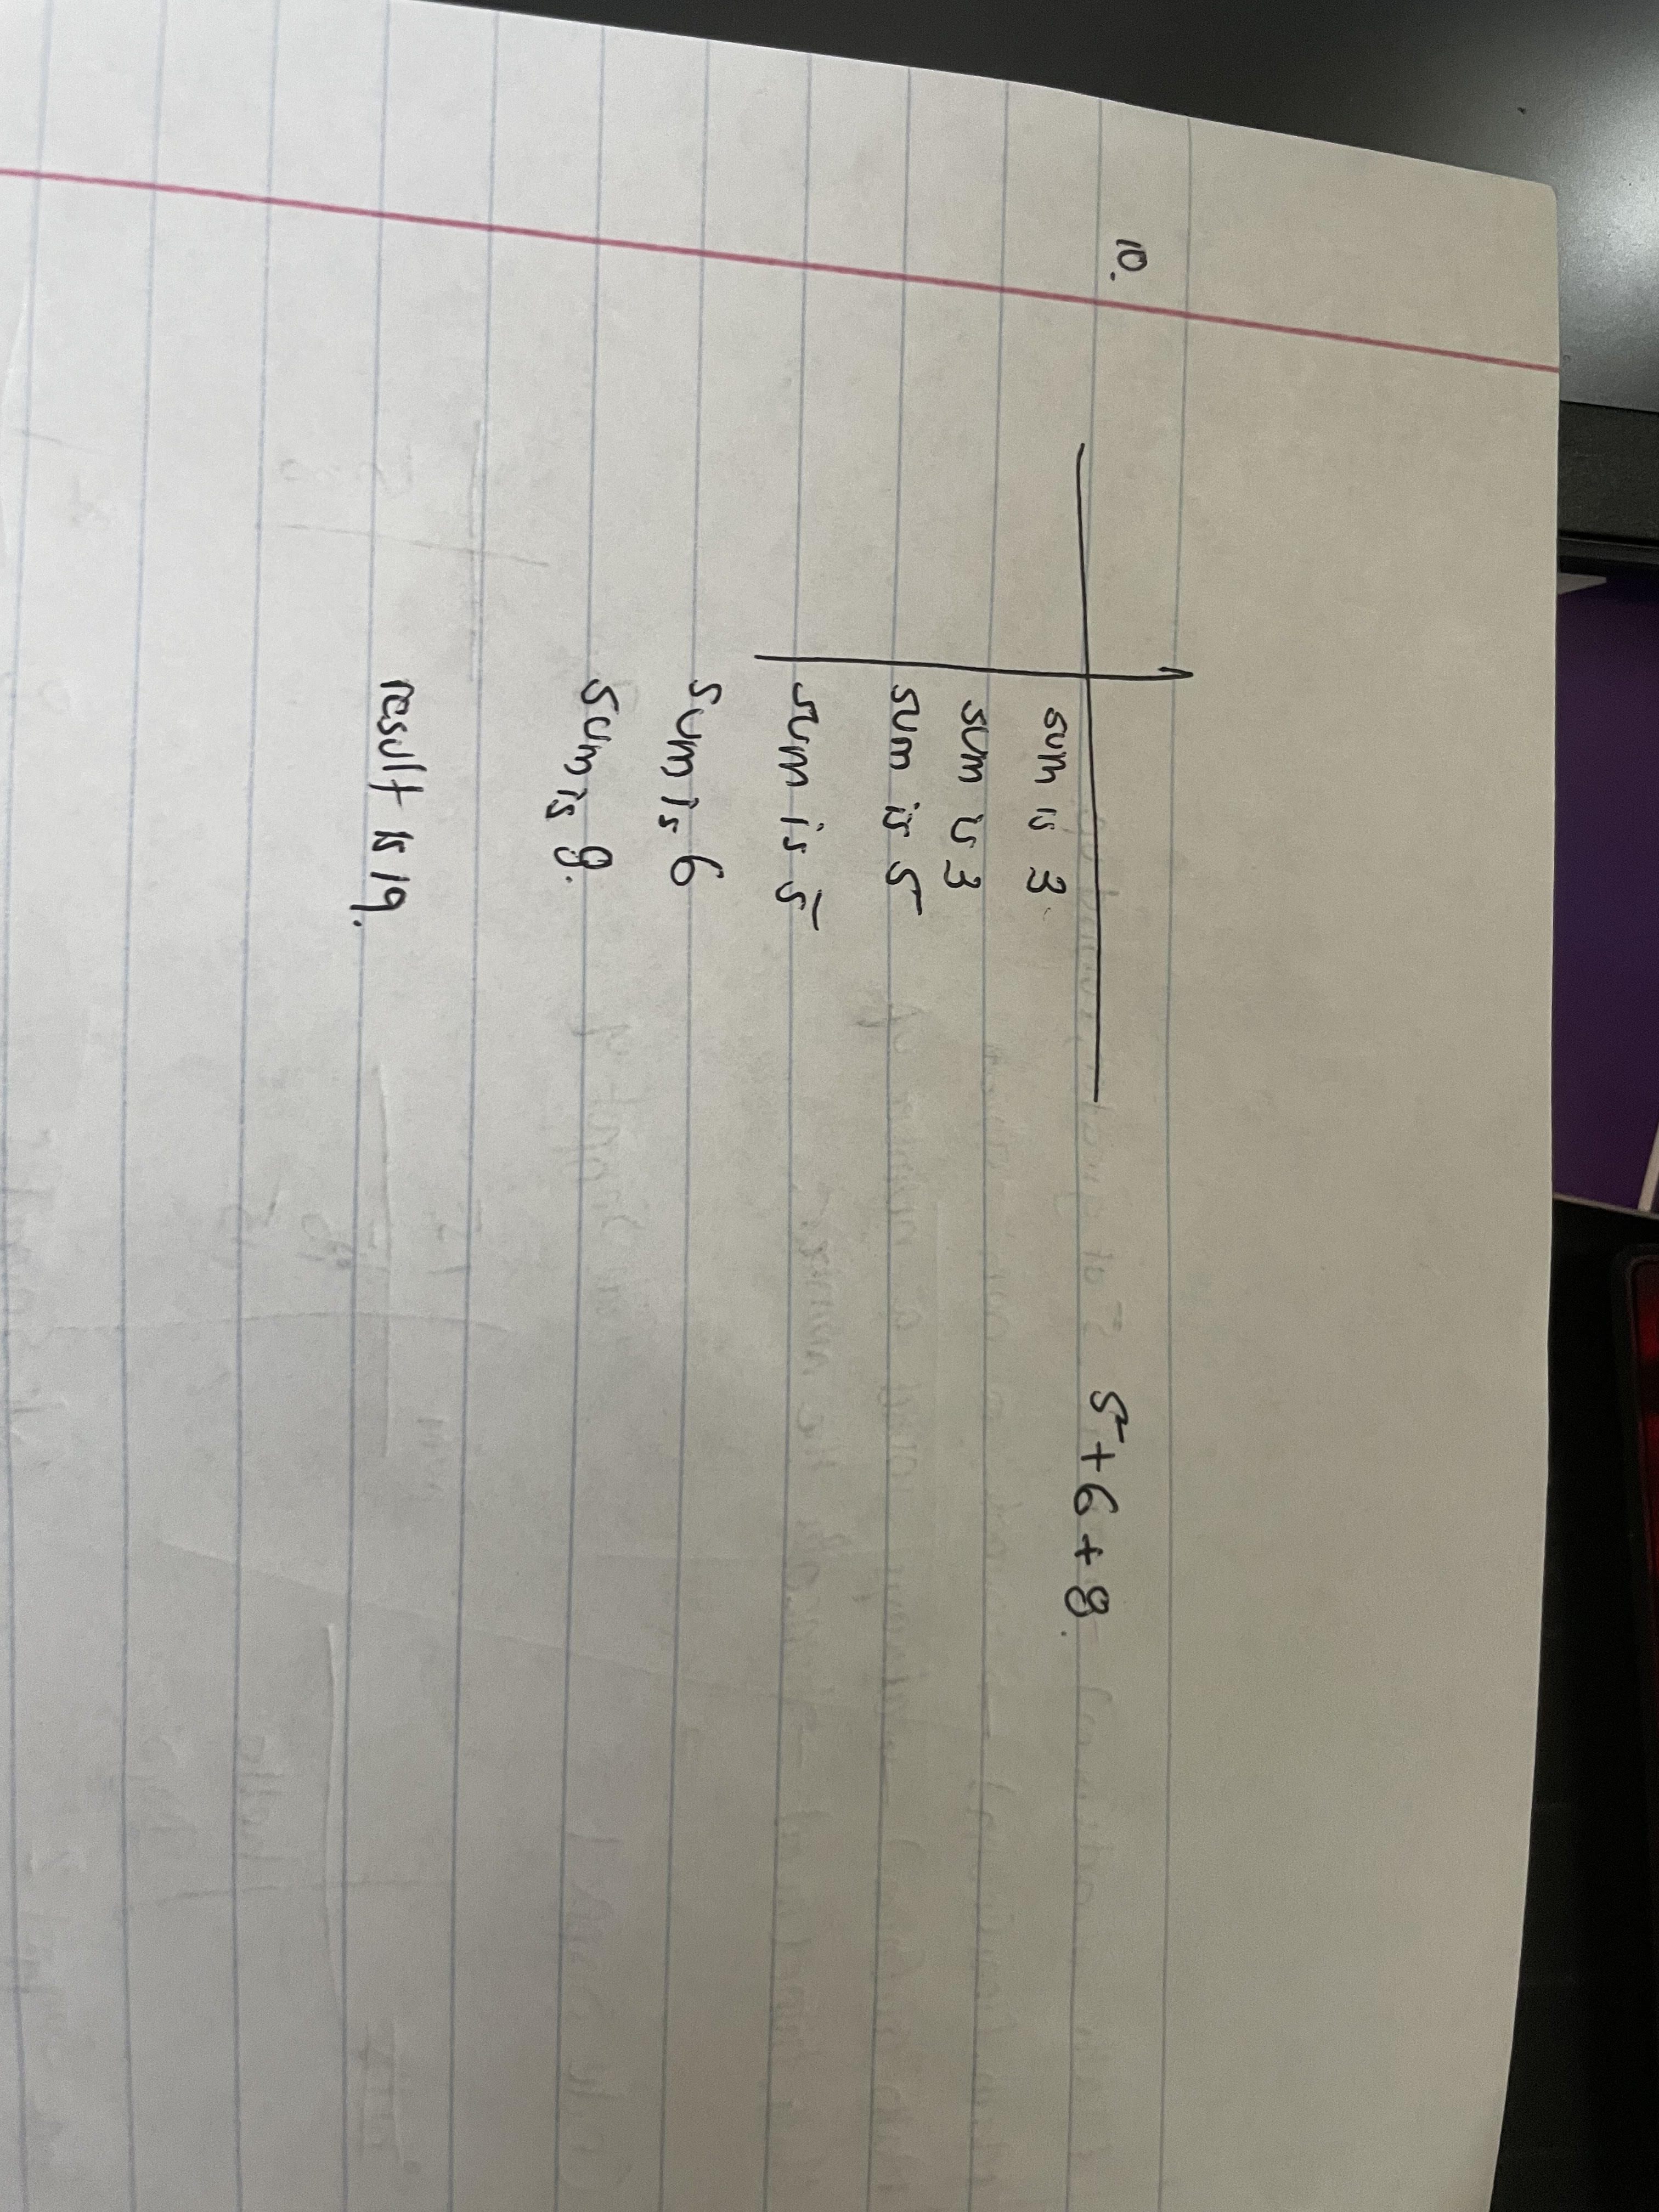 10.
5+6+8.
sum is 3.
sum is 3
sum is 5
sum is 5
sum is 6
sum is 8.
result is 19.